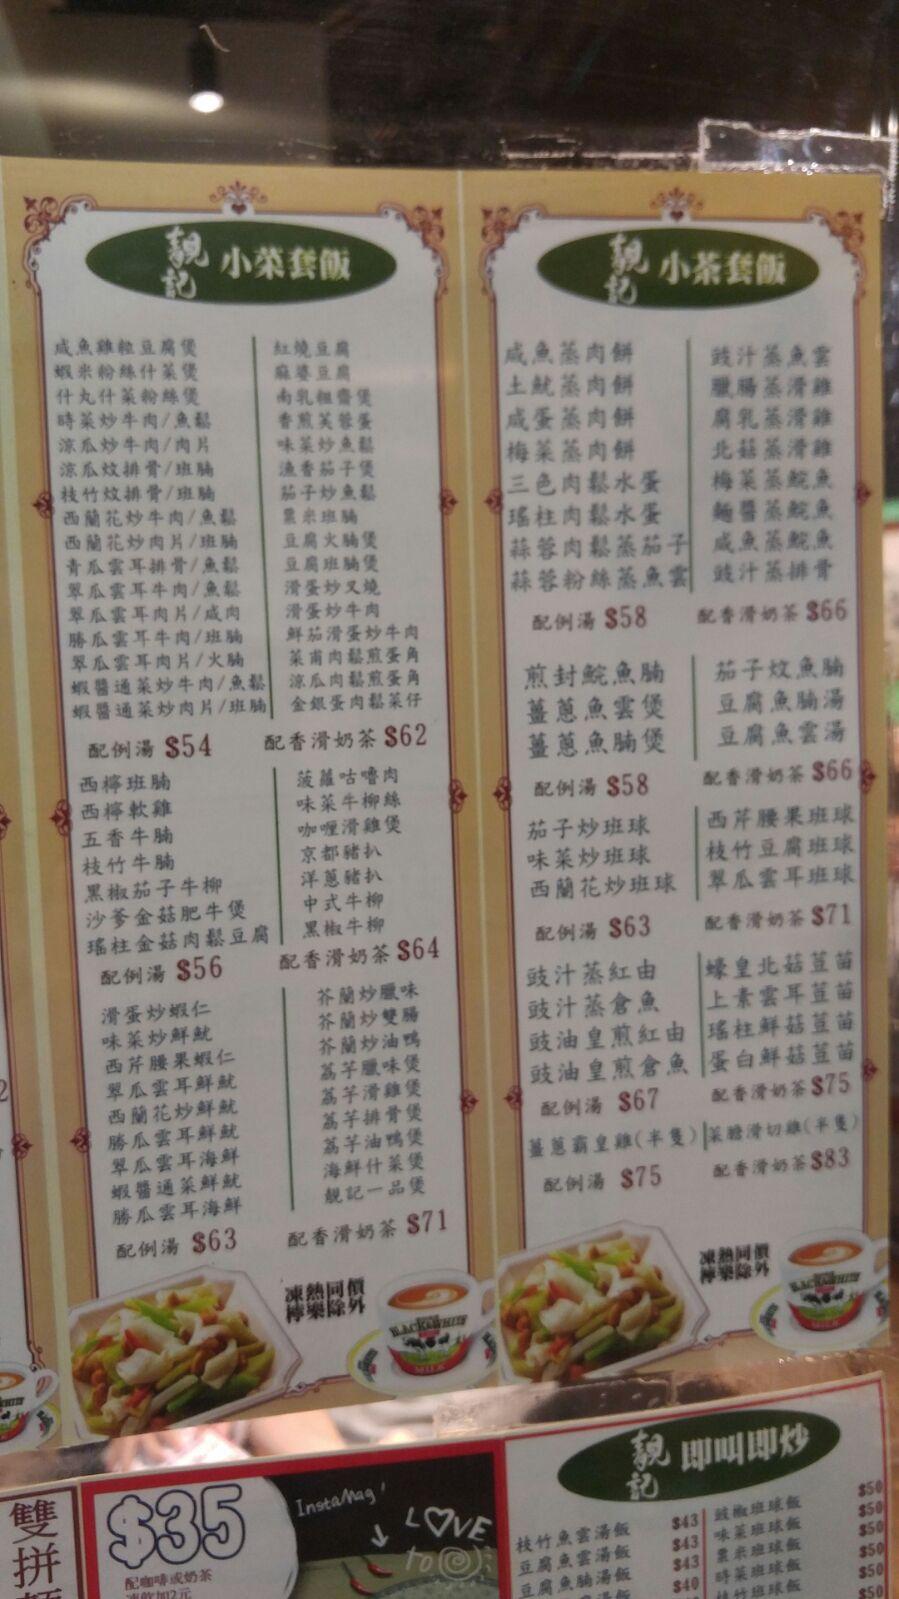 靚記 小菜套飯
咸魚雞粒豆腐煲
蝦米粉絲什菜煲
什丸什菜粉絲煲
時菜炒牛肉/魚鬆
涼瓜炒牛肉/肉片
涼瓜炆排骨/班腩
枝竹炆排骨/班腩
西蘭花炒牛肉/魚鬆
西蘭花炒肉片/班腩
青瓜雲耳排骨/魚鬆
翠瓜雲耳牛肉/魚鬆
翠瓜雲耳肉片/咸肉
勝瓜雲耳牛肉/班腩
翠瓜雲耳肉片/火腩
蝦醬通菜炒牛肉/魚鬆
蝦醬通菜炒肉片/班腩
紅燒豆腐
麻婆豆腐
南乳粗齋煲
香煎芙蓉蛋
味菜炒魚鬆
漁香茄子煲
茄子炒魚鬆
粟米班腩
豆腐火腩煲
豆腐班腩煲
滑蛋炒叉燒
滑蛋炒牛肉
鮮茄滑蛋炒牛肉
菜甫肉鬆煎蛋角
涼瓜肉鬆煎蛋角
金銀蛋肉鬆菜仔
配例湯 $54 配香滑奶茶 $62
西檸班腩
西檸軟雞
五香牛腩
枝竹牛腩
黑椒茄子牛柳
沙爹金菇肥牛煲
瑤柱金菇肉鬆豆腐
菠蘿咕嚕肉
味菜牛柳絲
咖喱滑雞煲
京都豬扒
洋蔥豬扒
中式牛柳
黑椒牛柳
配例湯 $56 配香滑奶茶 $64
滑蛋炒蝦仁
味菜炒鮮魷
西芹腰果蝦仁
翠瓜雲耳鮮魷
西蘭花炒鮮魷
勝瓜雲耳鮮魷
翠瓜雲耳海鮮
蝦醬通菜鮮魷
勝瓜雲耳海鮮
芥蘭炒臘味
芥蘭炒雙腸
芥蘭炒油鴨
荔芋臘味煲
荔芋滑雞煲
荔芋排骨煲
荔芋油鴨煲
海鮮什菜煲
靚記一品煲
配例湯 $63 配香滑奶茶 $71
凍熱同價
檸樂除外
BLACK&WHITE
MILK
靚記 小茶套飯
咸魚蒸肉餅
土魷蒸肉餅
咸蛋蒸肉餅
梅菜蒸肉餅
三色肉鬆水蛋
瑤柱肉鬆水蛋
蒜蓉肉鬆蒸茄子
蒜蓉粉絲蒸魚雲
豉汁蒸魚雲
臘腸蒸滑雞
腐乳蒸滑雞
北菇蒸滑雞
梅菜蒸鯇魚
麵醬蒸鯇魚
咸魚蒸鯇魚
豉汁蒸排骨
配例湯 $58 配香滑奶茶 $66
煎封鯇魚腩
薑蔥魚雲煲
薑蔥魚腩煲
茄子炆魚腩
豆腐魚腩湯
豆腐魚雲湯
配例湯 $58 配香滑奶茶 $66
茄子炒班球
味菜炒班球
西蘭花炒班球
西芹腰果班球
枝竹豆腐班球
翠瓜雲耳班球
配例湯 $63 配香滑奶茶 $71
豉汁蒸紅由
豉汁蒸倉魚
豉油皇煎紅由
豉油皇煎倉魚
蠔皇北菇荳苗
上素雲耳荳苗
瑤柱鮮菇荳苗
蛋白鮮菇荳苗
配例湯 $67 配香滑奶茶 $75
薑蔥霸皇雞(半隻) 菜膽滑切雞(半隻)
配例湯 $75 配香滑奶茶 $83
凍熱同價
檸樂除外
BLACK&WHITE
MILK
雙拼
$35
配咖啡或奶茶
凍飲加2元
InstaMag
LOVE
to
靚記 即叫即炒
枝竹魚雲湯飯 $43
豆腐魚雲湯飯 $43
豆腐魚腩湯飯 $43
$40
豉椒班球飯 $50
味菜班球飯 $50
粟米班球飯 $50
時菜班球飯 $50
枝竹班球飯 $50